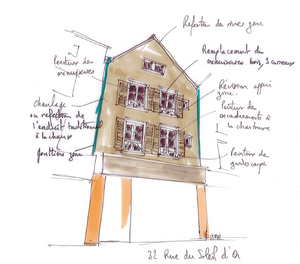 Réfection des rives zinc
Peinture des
menuiseries
Remplacement des
menuiseries bois, 3 carreaux
Révision appui
zinc.
Peinture des
encadrements à
la chartreuse
chaulage
ou réfection de
l'enduit traditionnel
à la chaux
gouttière zinc
Peinture de
garde corps
32 Rue du Soleil d'Or